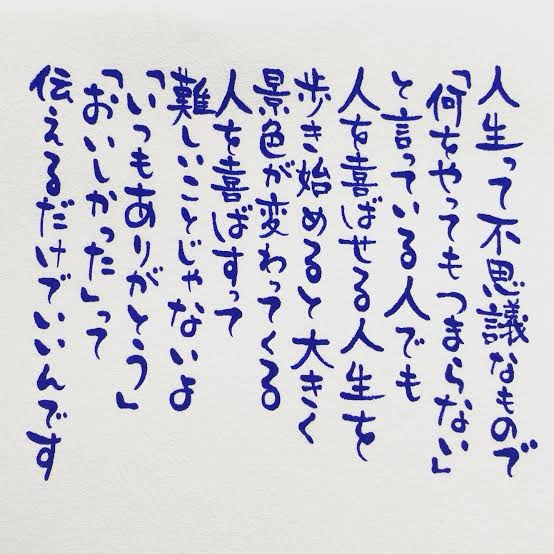 人生って不思議なもので
「何をやってもつまらない」
と言っている人でも
人を喜ばせる人生を
歩き始めると大きく
景色が変わってくる
人を喜ばすって
難しいことじゃないよ
「いつもありがとう」
「おいしかった」って
伝えるだけでいいんです